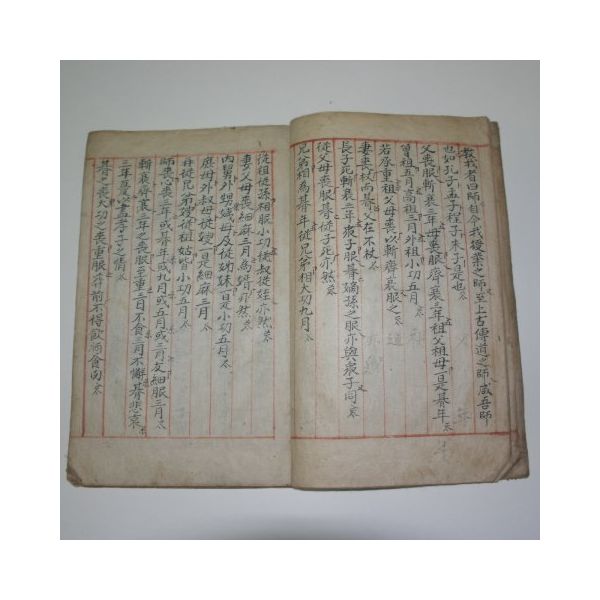 教我者曰師自今我授業之師至上古傳道之師咸吾師
也如孔子孟子程子朱子是也
父喪服斬衰三年母喪服齊衰三年祖父祖母一是朞年
曾祖五月高祖三月外祖小功五月
若承重祖父母喪以斬齊衰服之
妻喪杖而朞父在不杖
長子死斬衰三年衆子服朞嫡孫之服亦與衆子同
從父母喪服朞從子死亦然
兄弟相為朞年從兄弟相大功九月
從祖從孫相服小功從叔從姪亦然
妻父母喪細麻三月為婿亦然
內舅外甥姨母及從姊妹一是小功五月
庶母外叔母從嫂一是細麻三月
再從兄弟嫂從祖姑皆小功五月
師喪心喪三年或朞年或九月或五月或三月友細服三月
斬衰齊衰三年之喪服至重三日不食三月不懈朞悲哀
三年憂以孟孝子之情
朞之喪大功之喪重服葬前不得飲酒食肉